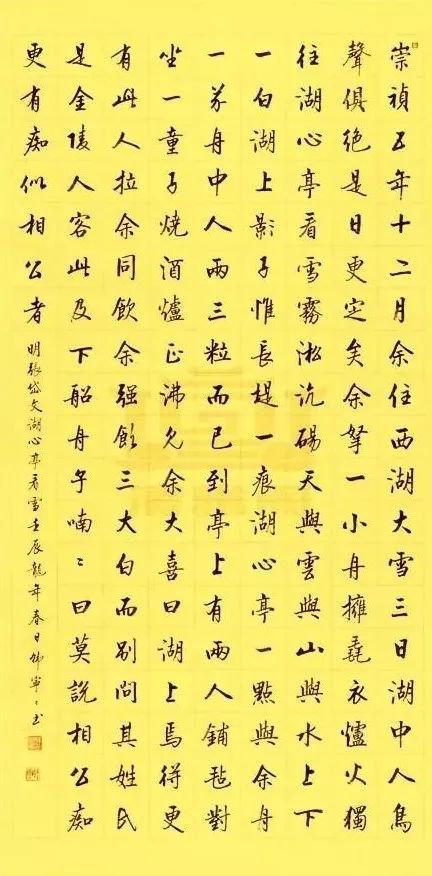 崇禎五年十二月余住西湖大雪三日湖中人鳥
聲俱絕是日更定矣余拏一小舟擁毳衣爐火獨
往湖心亭看雪霧淞沆碭天與雲與山與水上下
一白湖上影子惟長堤一痕湖心亭一點與余舟
一芥舟中人兩三粒而已到亭上有兩人鋪氈對
坐一童子燒酒爐正沸見余大喜曰湖上焉得更
有此人拉余同飲余强飲三大白而別問其姓氏
是金陵人客此及下船舟子喃〻曰莫說相公痴
更有痴似相公者
明張岱文湖心亭看雪壬辰龍年春日寧〻书